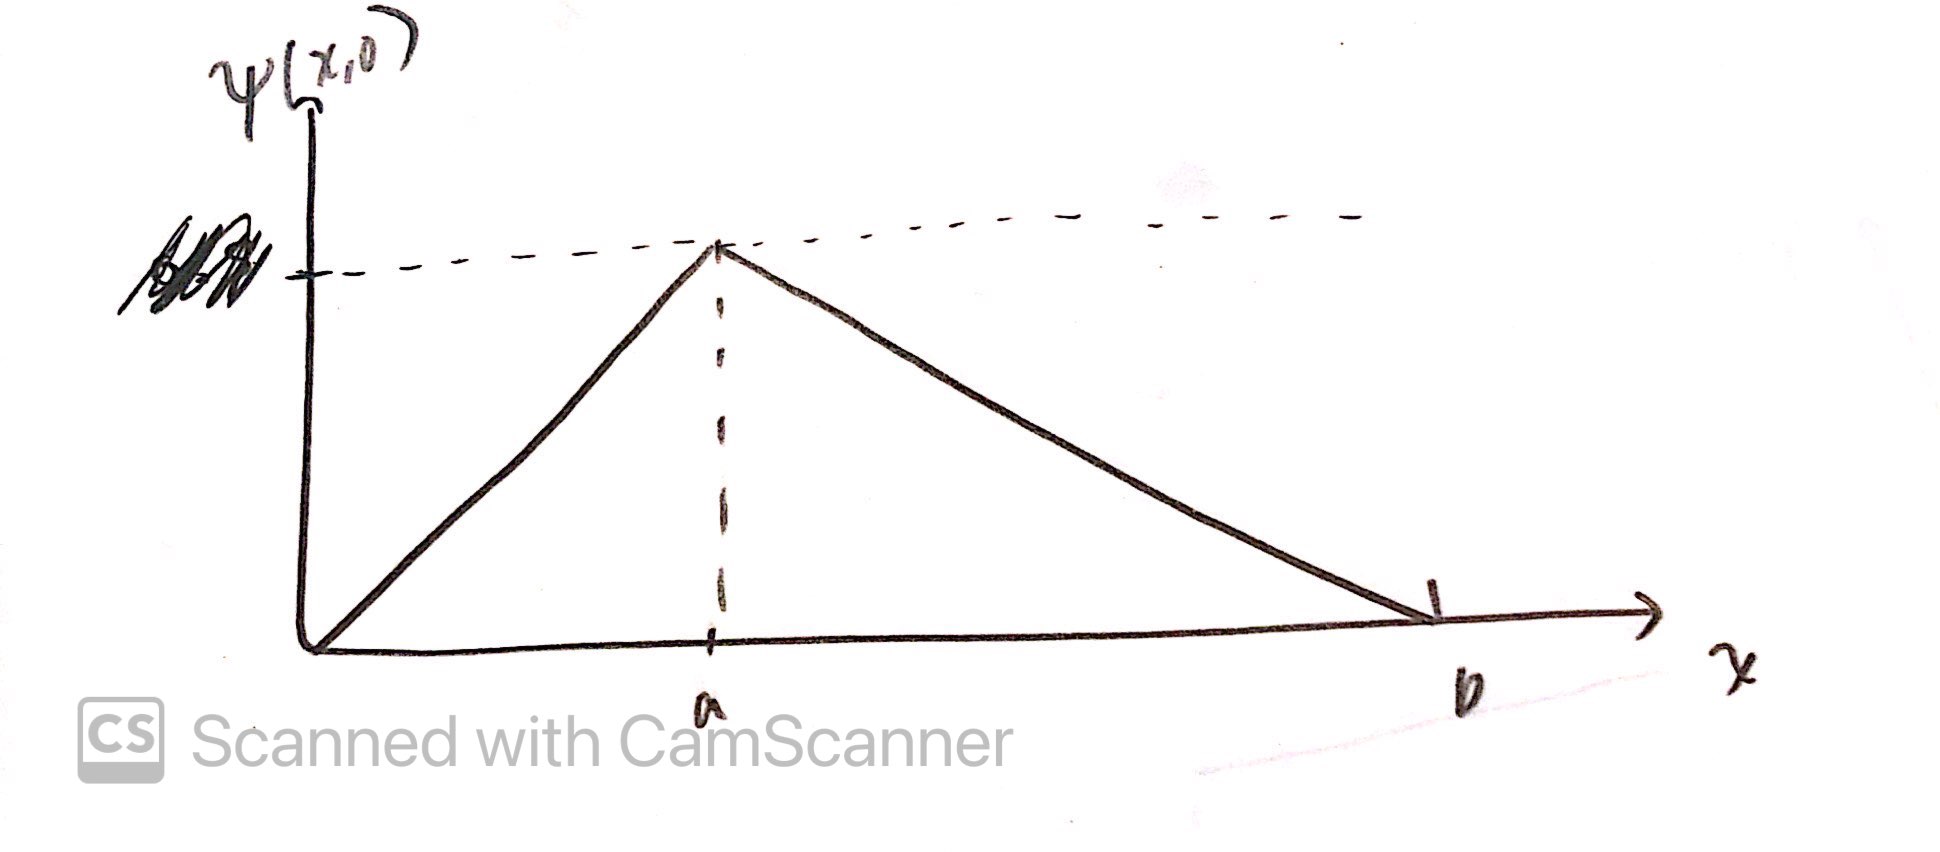 ψ(x,0)
a
b
x
CS Scanned with CamScanner